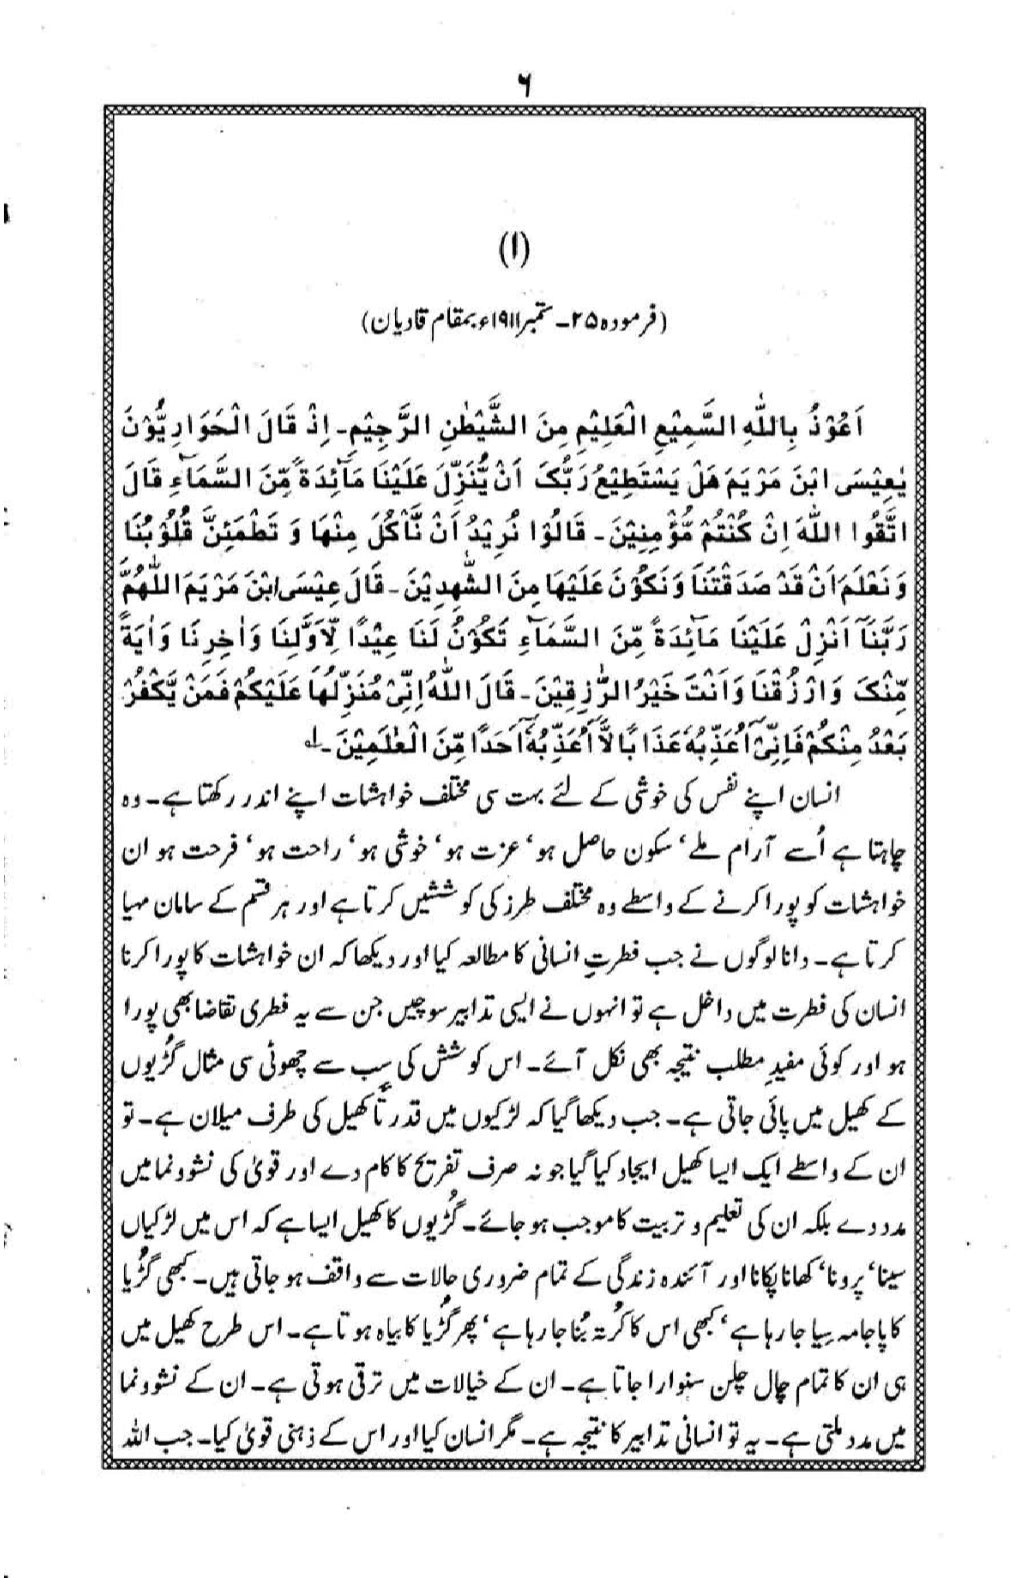 ۶
(۱)
(فرمودہ ۲۵۔ ستمبر ۱۹۱۱ء بمقام قادیان)
اَعُوْذُ بِاللّٰهِ السَّمِيْعِ الْعَلِيْمِ مِنَ الشَّيْطٰنِ الرَّجِيْمِ۔ اِذْ قَالَ الْحَوَارِيُّوْنَ
يٰعِيْسَى ابْنَ مَرْيَمَ هَلْ يَسْتَطِيْعُ رَبُّكَ اَنْ يُّنَزِّلَ عَلَيْنَا مَآئِدَةً مِّنَ السَّمَآءِ قَالَ
اتَّقُوا اللّٰهَ اِنْ كُنْتُمْ مُّؤْمِنِيْنَ۔ قَالُوْا نُرِيْدُ اَنْ نَّاْكُلَ مِنْهَا وَ تَطْمَئِنَّ قُلُوْبُنَا
وَ نَعْلَمَ اَنْ قَدْ صَدَقْتَنَا وَ نَكُوْنَ عَلَيْهَا مِنَ الشّٰهِدِيْنَ۔ قَالَ عِيْسَى ابْنَ مَرْيَمَ اللّٰهُمَّ
رَبَّنَآ اَنْزِلْ عَلَيْنَا مَآئِدَةً مِّنَ السَّمَآءِ تَكُوْنُ لَنَا عِيْدًا لِّاَوَّلِنَا وَ اٰخِرِنَا وَ اٰيَةً
مِّنْكَ وَ ارْزُقْنَا وَ اَنْتَ خَيْرُ الرّٰزِقِيْنَ۔ قَالَ اللّٰهُ اِنِّيْ مُنَزِّلُهَا عَلَيْكُمْ فَمَنْ يَّكْفُرْ
بَعْدُ مِنْكُمْ فَاِنِّيْٓ اُعَذِّبُهٗ عَذَابًا لَّآ اُعَذِّبُهٗٓ اَحَدًا مِّنَ الْعٰلَمِيْنَ۔ ۱؎
انسان اپنے نفس کی خوشی کے لئے بہت سی مختلف خواہشات اپنے اندر رکھتا ہے۔ وہ
چاہتا ہے اُسے آرام ملے‘ سکون حاصل ہو‘ عزت ہو‘ خوشی ہو‘ راحت ہو‘ فرحت ہو ان
خواہشات کو پورا کرنے کے واسطے وہ مختلف طرز کی کوششیں کرتا ہے اور ہر قسم کے سامان مہیا
کرتا ہے۔ دانا لوگوں نے جب فطرتِ انسانی کا مطالعہ کیا اور دیکھا کہ ان خواہشات کا پورا کرنا
انسان کی فطرت میں داخل ہے تو انہوں نے ایسی تدابیر سوچیں جن سے یہ فطری تقاضا بھی پورا
ہو اور کوئی مفیدِ مطلب نتیجہ بھی نکل آئے۔ اس کوشش کی سب سے چھوٹی سی مثال گُڑیوں
کے کھیل میں پائی جاتی ہے۔ جب دیکھا گیا کہ لڑکیوں میں قدرتاً کھیل کی طرف میلان ہے۔ تو
ان کے واسطے ایک ایسا کھیل ایجاد کیا گیا جو نہ صرف تفریح کا کام دے اور قویٰ کی نشوونما میں
مدد دے بلکہ ان کی تعلیم و تربیت کا موجب ہو جائے۔ گُڑیوں کا کھیل ایسا ہے کہ اس میں لڑکیاں
سینا‘ پرونا‘ کھانا پکانا اور آئندہ زندگی کے تمام ضروری حالات سے واقف ہو جاتی ہیں۔ کبھی گُڑیا
کا پاجامہ سِیا جا رہا ہے‘ کبھی اس کا کُرتہ بُنا جا رہا ہے‘ پھر گُڑیا کا بیاہ ہوتا ہے۔ اس طرح کھیل میں
ہی ان کا تمام چال چلن سنوارا جاتا ہے۔ ان کے خیالات میں ترقی ہوتی ہے۔ ان کے نشوونما
میں مدد ملتی ہے۔ یہ تو انسانی تدابیر کا نتیجہ ہے۔ مگر انسان کیا اور اس کے ذہنی قویٰ کیا۔ جب اللہ